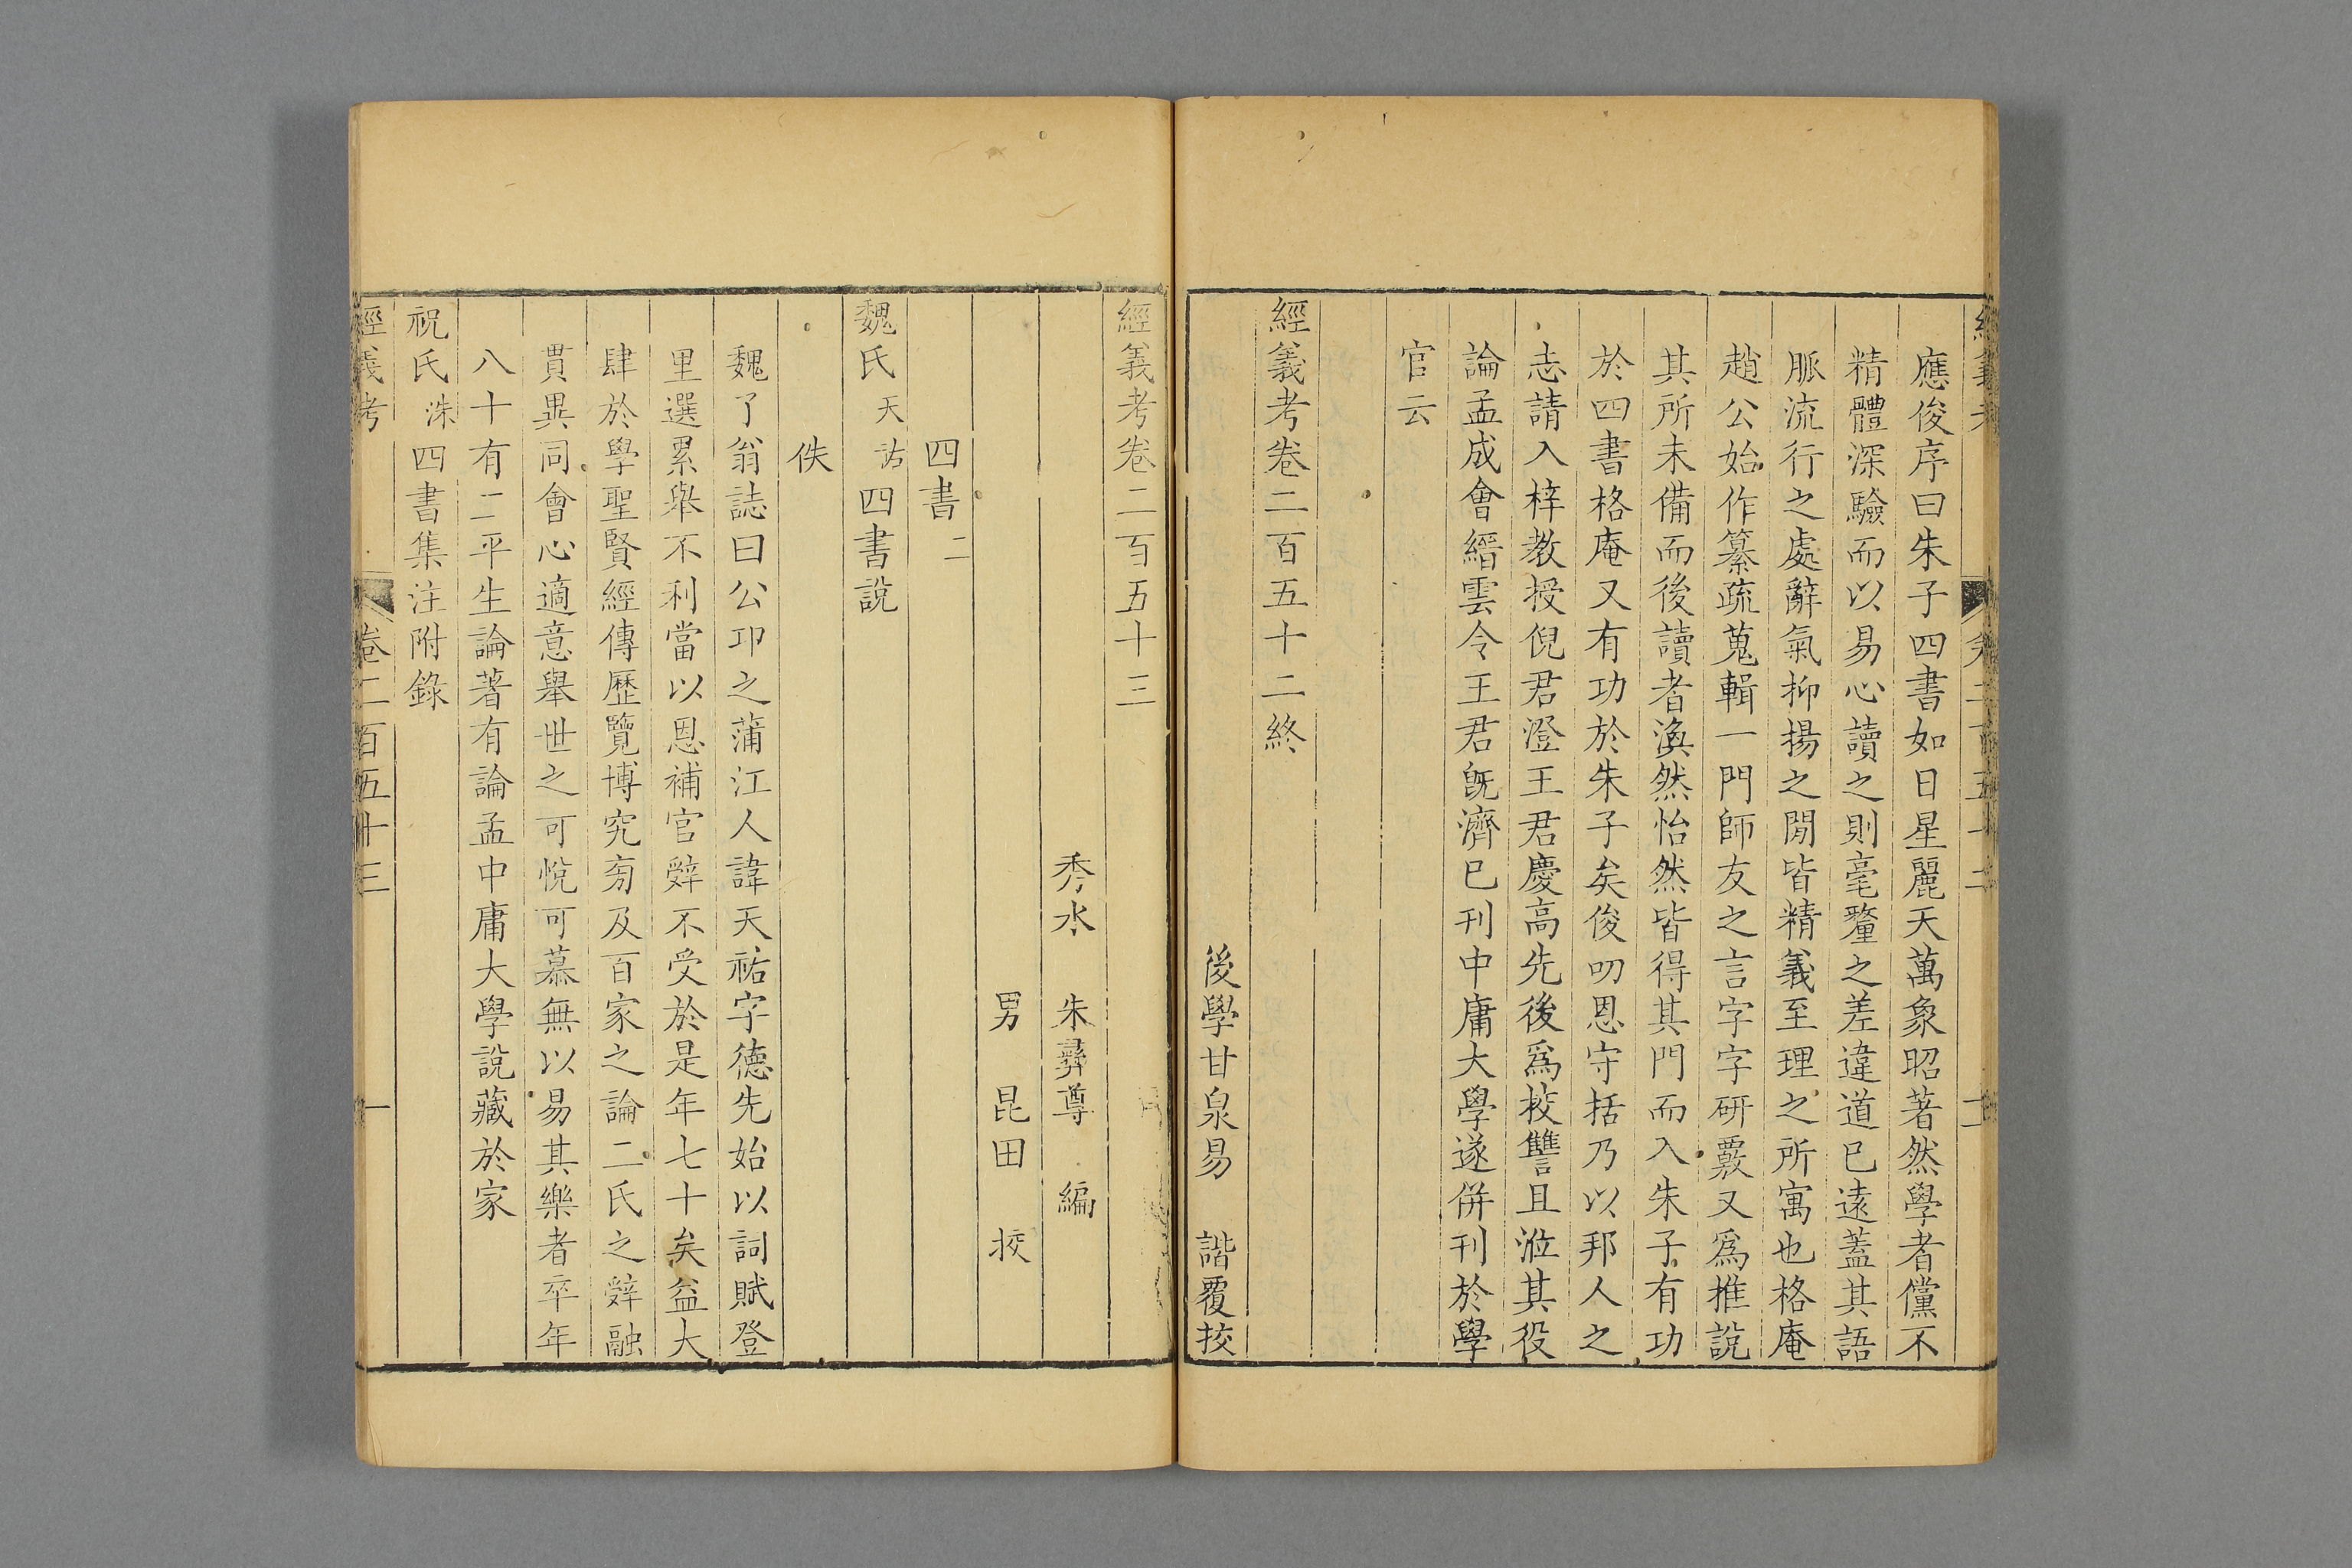 應俊序曰朱子四書如日星麗天萬象昭著然學者儻不
精體深驗而以易心讀之則毫釐之差違道已遠蓋其語
脈流行之處辭氣抑揚之閒皆精義至理之所寓也格庵
趙公始作纂疏蒐輯一門師友之言字字研覈又爲推說
其所未備而後讀者渙然怡然皆得其門而入朱子有功
於四書格庵又有功於朱子矣俊叨恩守括乃以邦人之
志請入梓教授倪君澄王君慶高先後爲挍讐且涖其役
論孟成會縉雲令王君旣濟已刊中庸大學遂併刊於學
官云
經義考卷二百五十二終
後學甘泉易 諧覆挍
經義考卷二百五十三
秀水 朱彝尊 編
男 昆田 挍
四書二
魏氏天祐四書說
佚
魏了翁誌曰公邛之蒲江人諱天祐字德先始以詞賦登
里選累舉不利當以恩補官辤不受於是年七十矣益大
肆於學聖賢經傳歷覽博究旁及百家之論二氏之辤融
貫異同會心適意舉世之可悅可慕無以易其樂者卒年
八十有二平生論著有論孟中庸大學說藏於家
祝氏洙四書集注附錄
經義考 卷二百五十三 一